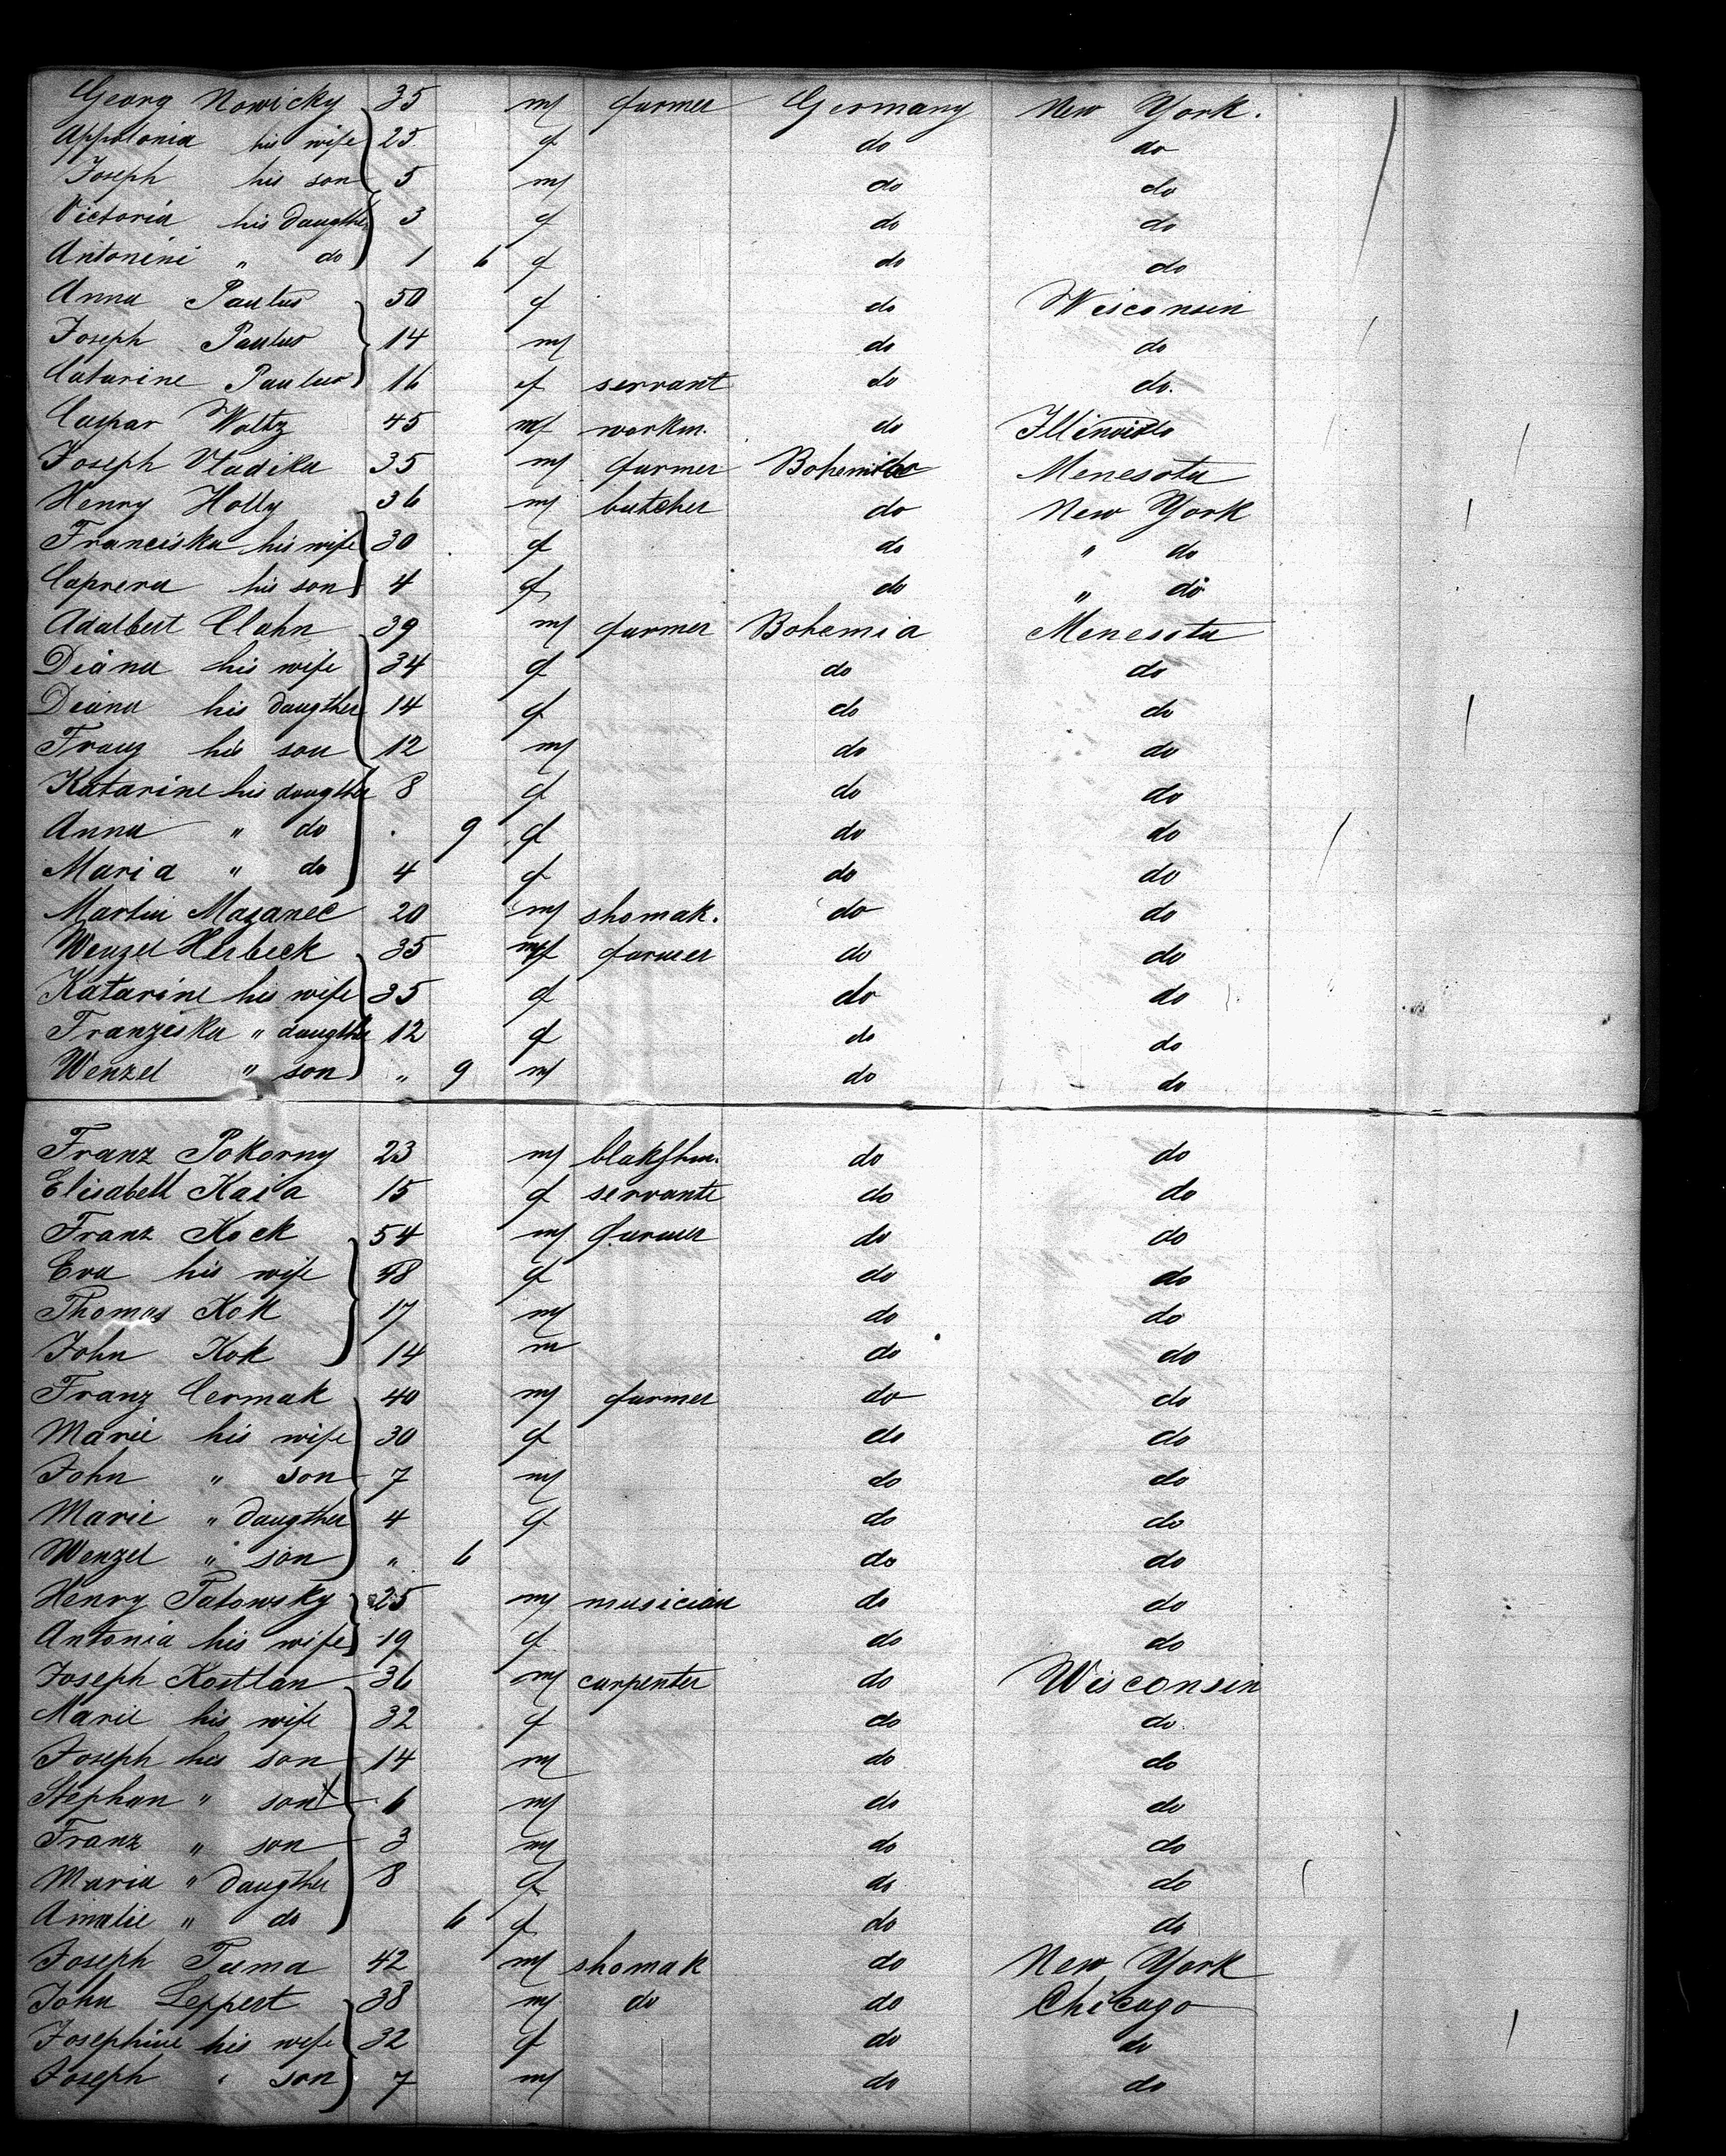 Georg Nowicky 35 m farmer Germany New York.
Appolonia his wife 25 f do do
Joseph his son 5 m do do
Victoria his daugther 3 f do do
Antonini " do 1 6 f do do
Anna Paulus 50 f do Wisconsin
Joseph Paulus 14 m do do
Catarine Paulus 16 f servant do do.
Caspar Woltz 45 m workm. do Illinois
Joseph Vladika 35 m farmer Bohemia Menesota
Henry Holly 36 m butcher do New York
Franciska his wife 30 f do " do
Caprera his son 4 f do " do
Adalbert Clahn 39 m farmer Bohemia Menesota
Diana his wife 34 f do do
Diana his daugther 14 f do do
Franz his son 12 m do do
Katarine his daugther 8 f do do
Anna " do . 9 f do do
Maria " do 4 f do do
Martin Mazanec 20 m shomak. do do
Wenzel Herbeck 35 m farmer do do
Katarine his wife 35 f do do
Franziska " daugther 12 f do do
Wenzel " son " 9 m do do
Franz Pokorny 23 m do do
Elisabeth Kaia 15 f servante do do
Franz Kock 54 m farmer do do
Eva his wife 48 f do do
Thomas Kok 17 m do do
John Kok 14 m do do
Franz Cermak 40 m farmer do do
Marie his wife 30 f do do
John " son 7 m do do
Marie " daugther 4 f do do
Wenzel " son " 6 do do
Henry Patowsky 25 m musician do do
Antonia his wife 19 f do do
Joseph Kostlan 36 m carpenter do Wisconsin
Marie his wife 32 f do do.
Joseph his son 14 m do do
Stephan " son 6 m do do
Franz " son 3 m do do
Maria " daugther 8 f do do
Amalie " do 6 f do do
Joseph Tuma 42 m shomak do New York
John Leppert 38 m do do Chicago
Josephine his wife 32 f do do
Joseph " son 7 m do do